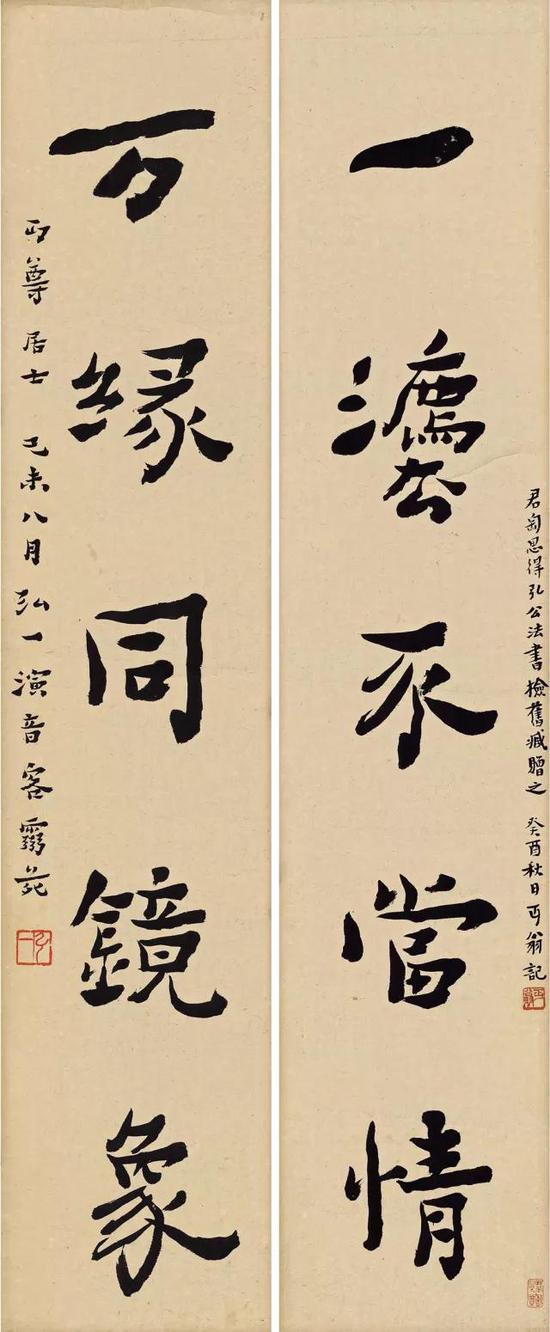 一灋不當情
君匋思得弘公法書檢舊臧贈之 癸酉秋日丏翁記
万緣同鏡象
丏尊居士 己未八月弘一演音客靈苑
弘一